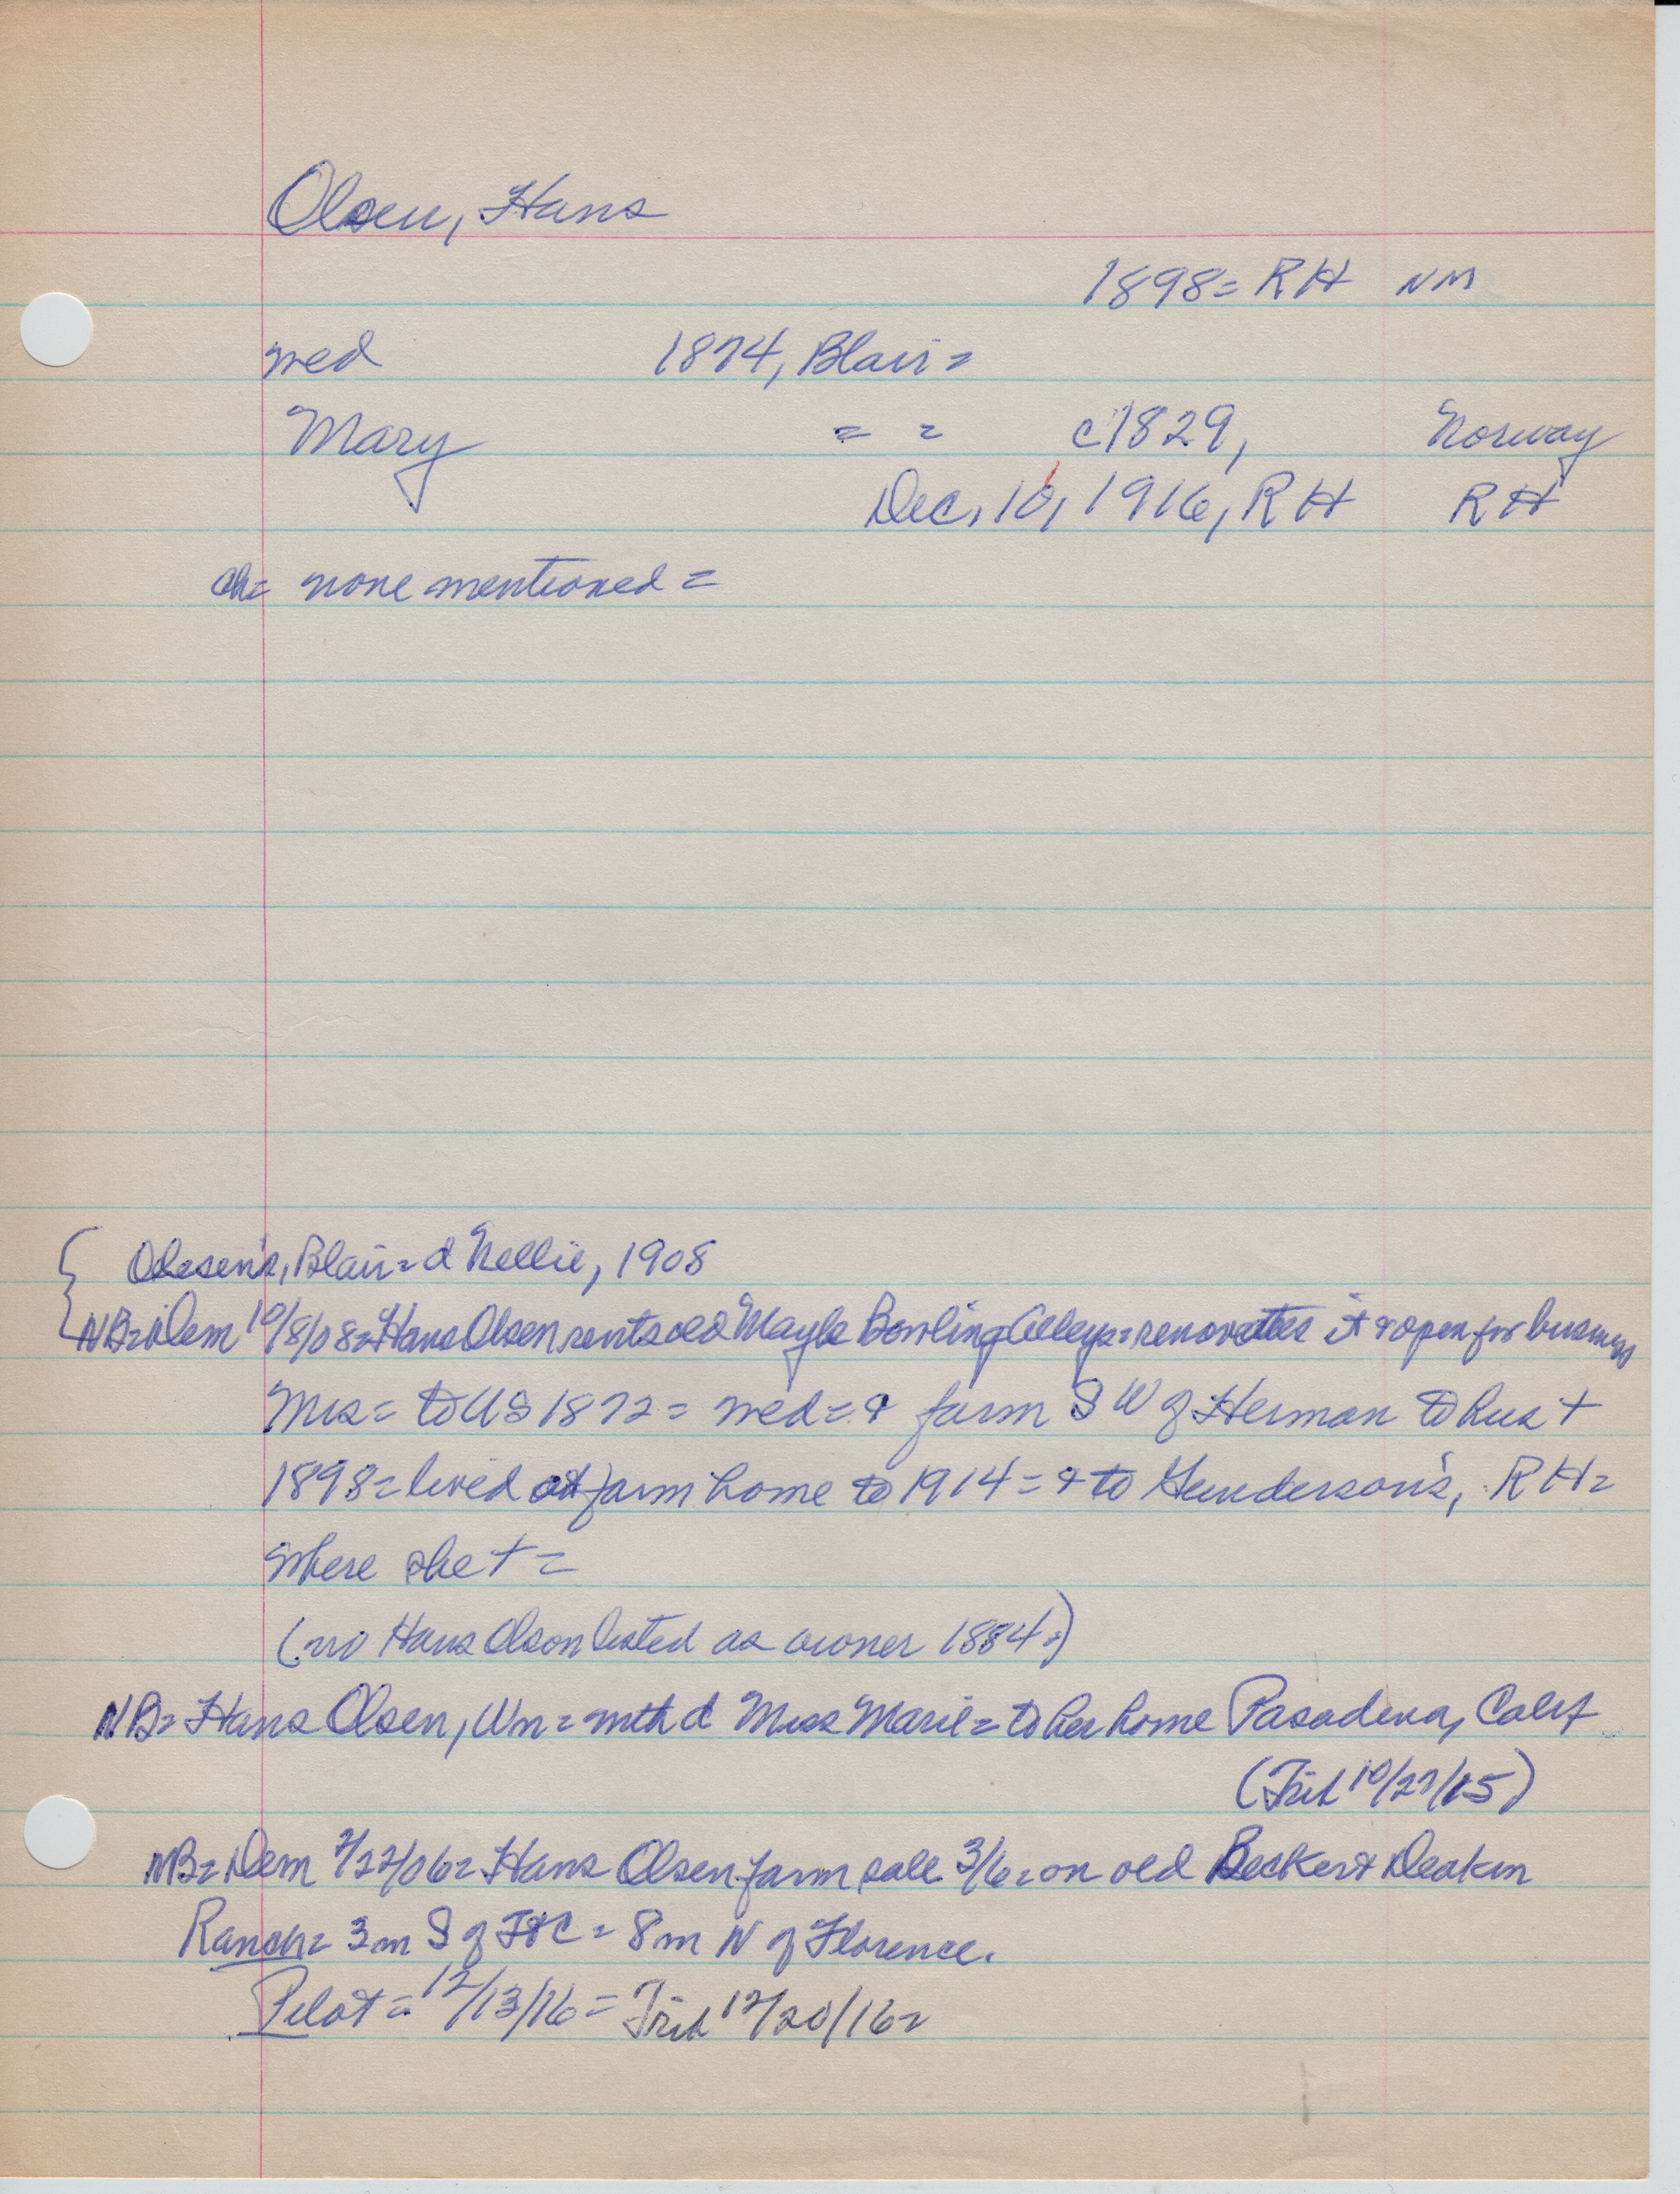 Olsen, Hans
1898= RH NM
wed 1874, Blair=
Mary = = c1829, Norway
Dec, 10, 1916, RH RH
ch= none mentioned =
Olesen's, Blair= d Nellie, 1908
NB= Dem 10/8/08= Hans Olsen rents old Mayle Bowling Alleys= renovates it & open for business
Mrs= to US 1872= wed= & farm SW of Herman to hus +
1898= lived at farm home to 1914= & to Gunderson's, RH=
where she + =
(no Hans Olson listed as owner 1884=)
NB= Hans Olsen, Wn= mth d Miss Marie= to her home Pasadena, Calif
(Trib 10/27/15)
NB= Dem 2/22/06= Hans Olsen farm sale 3/6= on old Becker & Deakin
Ranch= 3m S of Ft C= 8m N of Florence.
Pilot= 12/13/16= Trib 12/20/16=